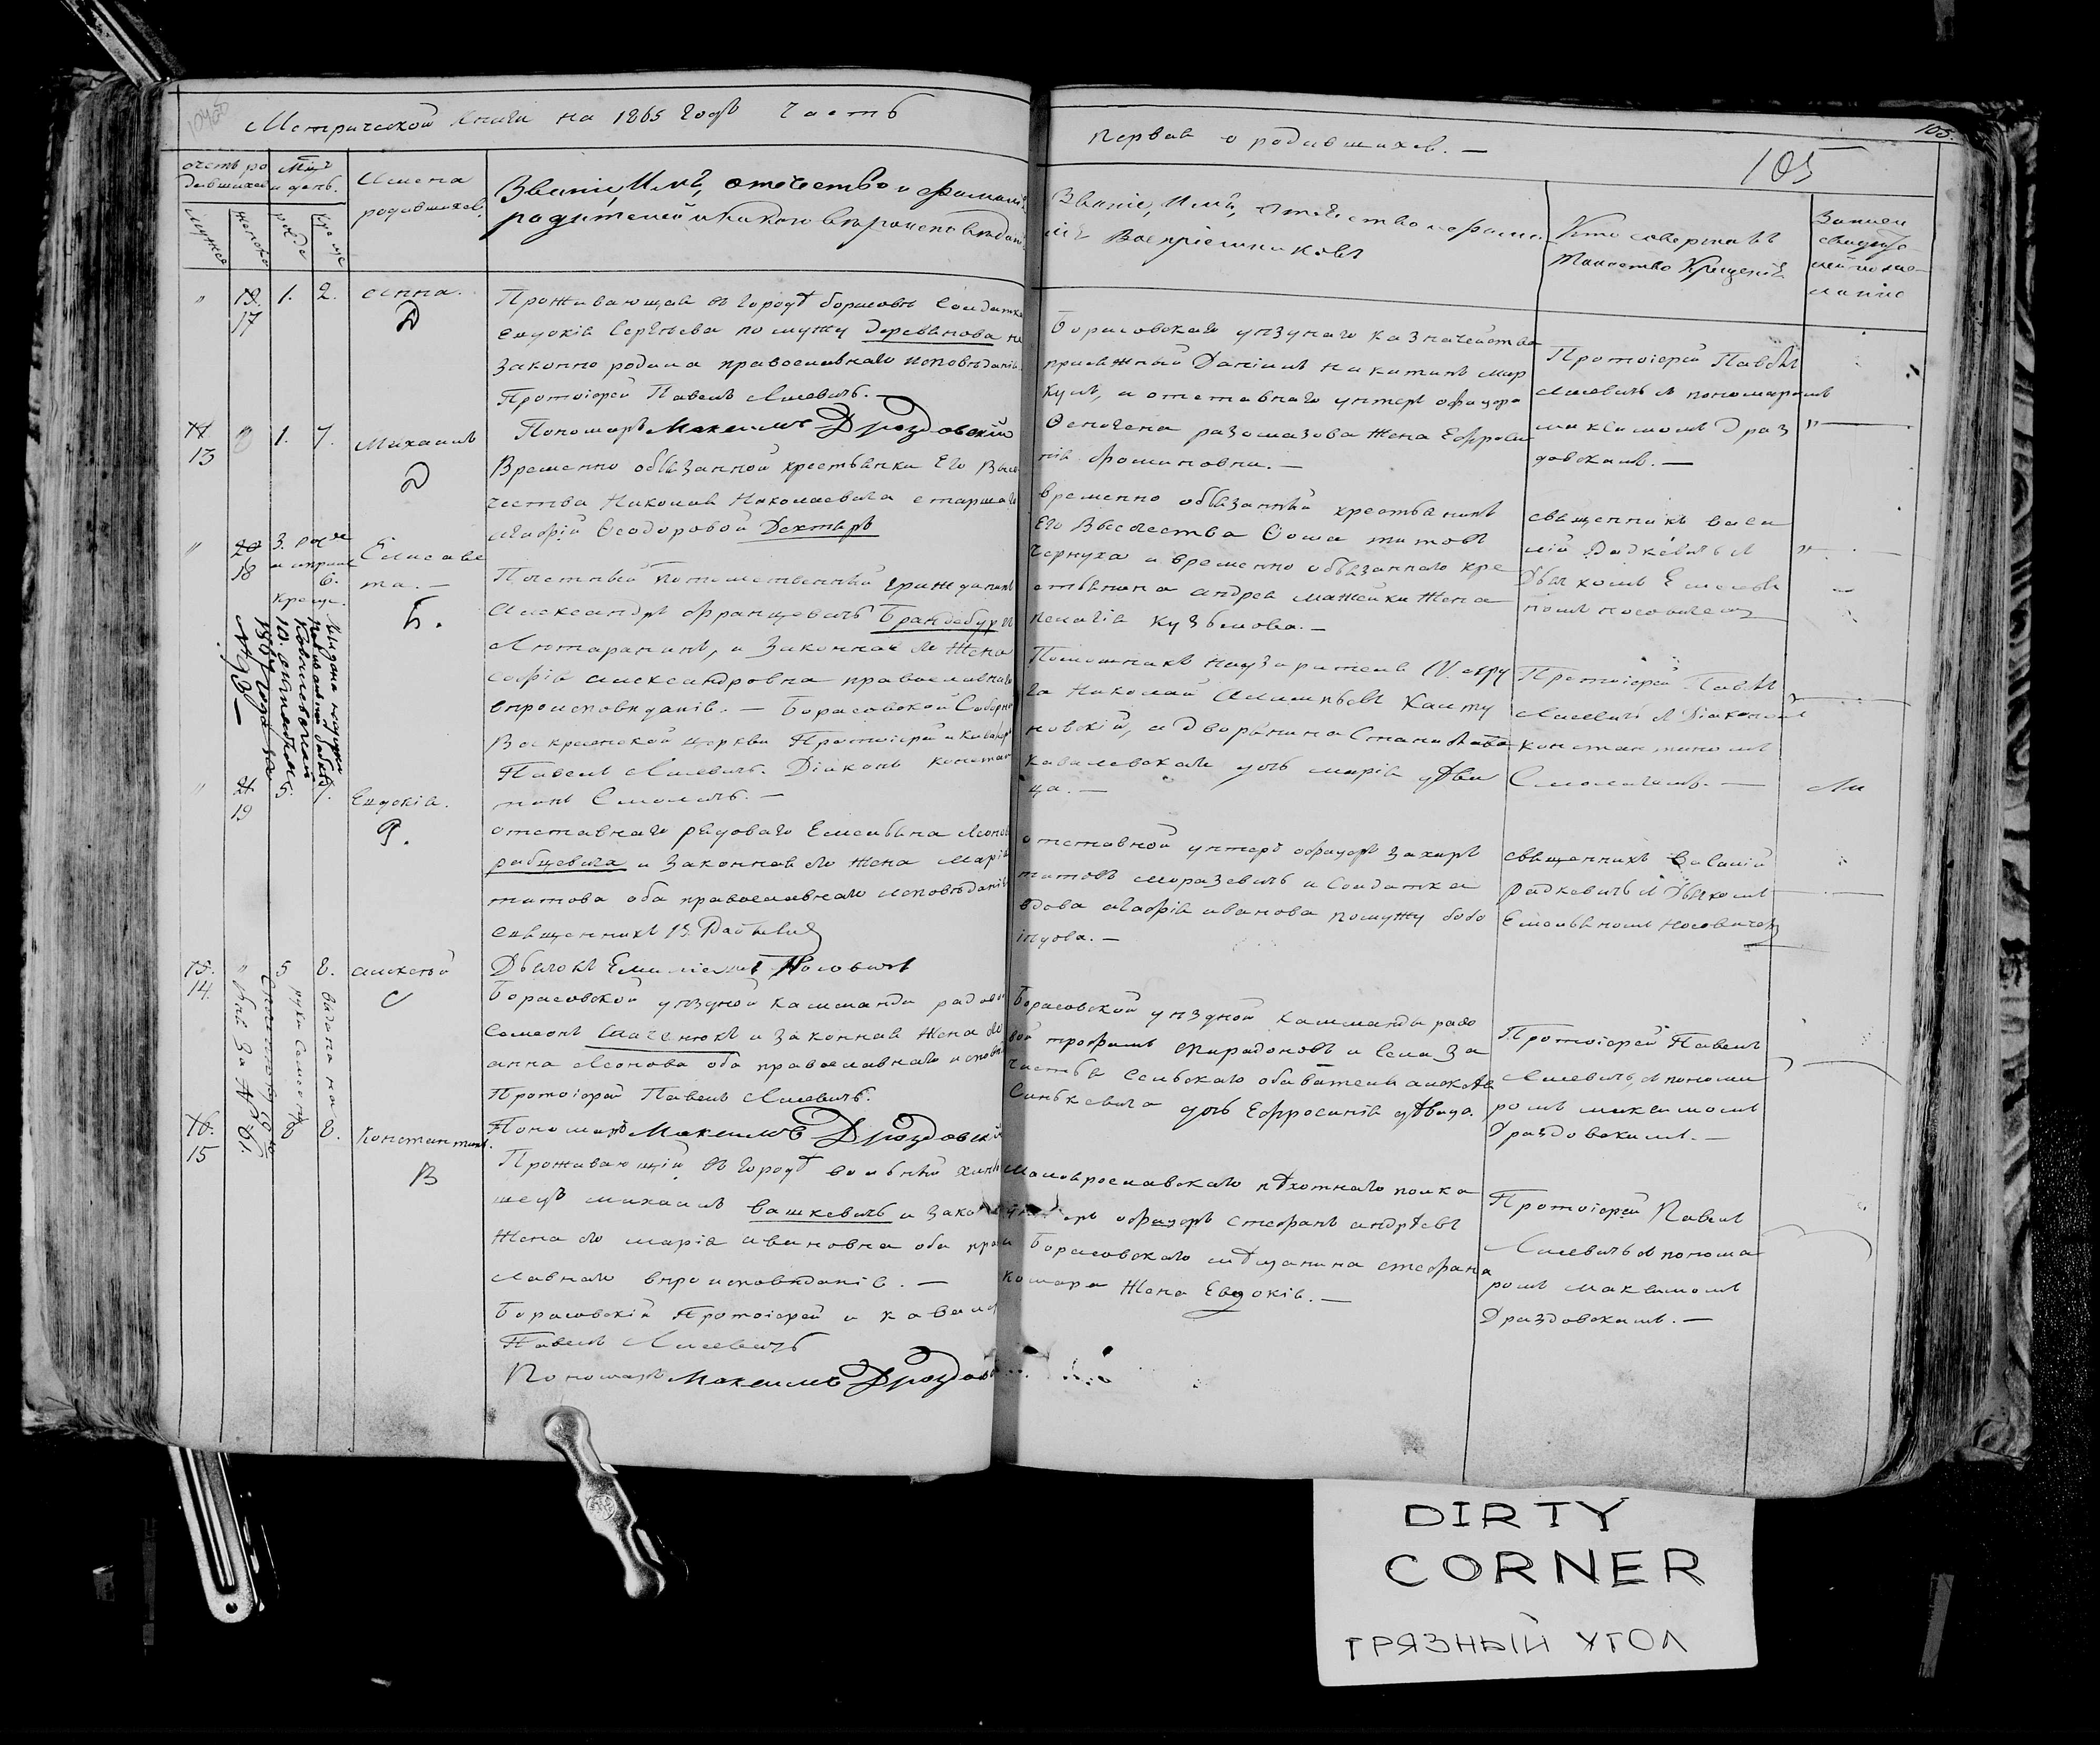 Метрической книги на 1865 годъ Часть
первая о родившихся. —
105.
105
Имена
родившихся.
Званіе, Имя, отчество и фамилія
родителей и какого вѣроисповѣданія
Званіе, Имя, отчество и фами
лія Воспріемниковъ
Кто совершалъ
таинство Крещенія
19. 1. 2. Анна.
17
Д
Проживающая въ городѣ Борисовѣ Солдатка
Евдокія Сергѣева по мужу Деревянова не
законно родила православнаго исповѣданія.
Протоіерей Павелъ Лисевичъ. —
Пономарь Максимъ Дроздовскій
Борисовскаго уѣзднаго казначейства
присяжный Даніилъ Никитинъ
и отставнаго унтеръ офицера
жена Ефроси
нія Фоминовна. —
Протоіерей Павелъ
Лисевичъ съ пономаремъ
Максимомъ Дроз
довскимъ. —
1. 7. Михаилъ
13
Д
Временно обязанной крестьянки Его Высо
чества Николая Николаевича старшаго
Агафіи Феодоровой Дехтяръ
временно обязанный крестьянинъ
Его Высочества Фома Титовъ
Чернуха и временно обязаннаго кре
стьянина Андрея Мажейки жена
Пелагія Кузьмова. —
священникъ Васи
лій Радкевичъ съ
Дьячкомъ Емелья
номъ Носовичемъ
18
Елисаве
та. —
Б.
Почетный потомственный гражданинъ
Александръ Францевичъ Бранденбургъ
Лютеранинъ, и Законная его Жена
Софія Александровна православнаго
вѣроисповѣданія. — Борисовской Соборной
Воскресенской церкви Протоіерей и кавалеръ
Павелъ Лисевичъ. Діаконъ Констан
тинъ Смоличъ. —
Помошникъ надзирателя IV. окру
га Николай
новскій, и дворянина Станислава
Ковалевскаго дочь Марія дѣви
ца. —
Протоіерей Павелъ
Лисевичъ съ Діакономъ
Константиномъ
Смоличемъ. —
19
Евдокія.
Р.
отставнаго рядоваго Емельяна Леонов
Рабцевича и законная его жена Марія
Титова оба православнаго исповѣданія
священникъ В. Радкевичъ
Дьячокъ Емиліянъ Носовичъ
отставной унтеръ офицеръ Захаръ
Титовъ Моразевичъ и Солдатка
вдова Агафія Иванова по мужу
священникъ Василій
Радкевичъ съ Дьячкомъ
Емельяномъ Носовичемъ
15. 5 8. Алексѣй
14.
С
Борисовской уѣздной камманды рядовой
Семеонъ и законная жена его
Анна Леонова оба православнаго исповѣд
Протоіерей Павелъ Лисевичъ.
Пономарь Максимъ Дроздовскій
Борисовской уѣздной камманды рядо
вой Трофимъ Спиридоновъ и села За
чистья Сельскаго обывателя Алексѣя
Синькевича дочь Ефросинія дѣвица.
Протоіерей Павелъ
Лисевичъ, съ понома
ремъ Максимомъ
Дроздовскимъ. —
16. 8 8. Константинъ.
15
В
Проживающій въ городѣ вольный
Михаилъ Вашкевичъ и закон
жена его Марія Ивановна оба право
славнаго вѣроисповѣданія. —
Борисовскій Протоіерей и кавалеръ
Павелъ Лисевичъ
Пономарь Максимъ Дроздов
Малоярославскаго пѣхотнаго полка
унтеръ офицеръ Стефанъ Андрѣевъ
и Борисовскаго мѣщанина Стефана
Комара жена Евдокія. —
Протоіерей Павелъ
Лисевичъ съ понома
ремъ Максимомъ
Дроздовскимъ. —
DIRTY
CORNER
ГРЯЗНЫЙ УГОЛ